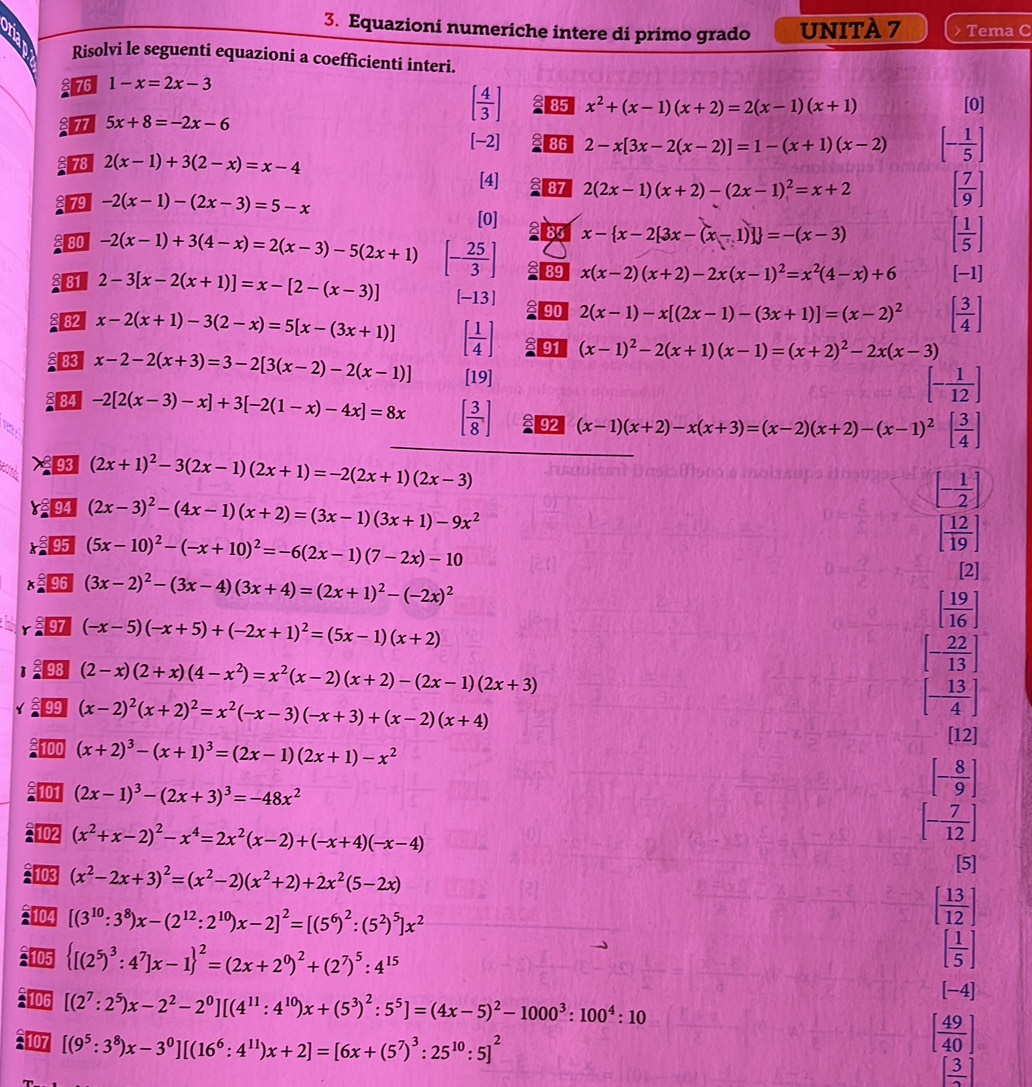 3. Equazioni numeriche intere di primo grado UNITÀ 7 > Tema C
Risolvi le seguenti equazioni a coefficienti interi.
76 1 − x = 2x − 3 [4/3]
77 5x + 8 = −2x − 6 [−2]
78 2(x − 1) + 3(2 − x) = x − 4 [4]
79 −2(x − 1) − (2x − 3) = 5 − x [0]
80 −2(x − 1) + 3(4 − x) = 2(x − 3) − 5(2x + 1) [−25/3]
81 2 − 3[x − 2(x + 1)] = x − [2 − (x − 3)] [−13]
82 x − 2(x + 1) − 3(2 − x) = 5[x − (3x + 1)] [1/4]
83 x − 2 − 2(x + 3) = 3 − 2[3(x − 2) − 2(x − 1)] [19]
84 −2[2(x − 3) − x] + 3[−2(1 − x) − 4x] = 8x [3/8]
85 x² + (x − 1)(x + 2) = 2(x − 1)(x + 1) [0]
86 2 − x[3x − 2(x − 2)] = 1 − (x + 1)(x − 2) [−1/5]
87 2(2x − 1)(x + 2) − (2x − 1)² = x + 2 [7/9]
88 x − {x − 2[3x − (x − 1)]} = −(x − 3) [1/5]
89 x(x − 2)(x + 2) − 2x(x − 1)² = x²(4 − x) + 6 [−1]
90 2(x − 1) − x[(2x − 1) − (3x + 1)] = (x − 2)² [3/4]
91 (x − 1)² − 2(x + 1)(x − 1) = (x + 2)² − 2x(x − 3) [−1/12]
92 (x − 1)(x + 2) − x(x + 3) = (x − 2)(x + 2) − (x − 1)² [3/4]
93 (2x + 1)² − 3(2x − 1)(2x + 1) = −2(2x + 1)(2x − 3) [−1/2]
94 (2x − 3)² − (4x − 1)(x + 2) = (3x − 1)(3x + 1) − 9x² [12/19]
95 (5x − 10)² − (−x + 10)² = −6(2x − 1)(7 − 2x) − 10 [2]
96 (3x − 2)² − (3x − 4)(3x + 4) = (2x + 1)² − (−2x)² [19/16]
97 (−x − 5)(−x + 5) + (−2x + 1)² = (5x − 1)(x + 2) [−22/13]
98 (2 − x)(2 + x)(4 − x²) = x²(x − 2)(x + 2) − (2x − 1)(2x + 3) [−13/4]
99 (x − 2)²(x + 2)² = x²(−x − 3)(−x + 3) + (x − 2)(x + 4) [12]
100 (x + 2)³ − (x + 1)³ = (2x − 1)(2x + 1) − x² [−8/9]
101 (2x − 1)³ − (2x + 3)³ = −48x² [−7/12]
102 (x² + x − 2)² − x⁴ = 2x²(x − 2) + (−x + 4)(−x − 4) [5]
103 (x² − 2x + 3)² = (x² − 2)(x² + 2) + 2x²(5 − 2x) [13/12]
104 [(3¹⁰ : 3⁸)x − (2¹² : 2¹⁰)x − 2]² = [(5⁶)² : (5²)⁵]x² [1/5]
105 {[(2⁵)³ : 4⁷]x − 1}² = (2x + 2⁰)² + (2⁷)⁵ : 4¹⁵ [−4]
106 [(2⁷ : 2⁵)x − 2² − 2⁰][(4¹¹ : 4¹⁰)x + (5³)² : 5⁵] = (4x − 5)² − 1000³ : 100⁴ : 10 [49/40]
107 [(9⁵ : 3⁸)x − 3⁰][(16⁶ : 4¹¹)x + 2] = [6x + (5⁷)³ : 25¹⁰ : 5]²